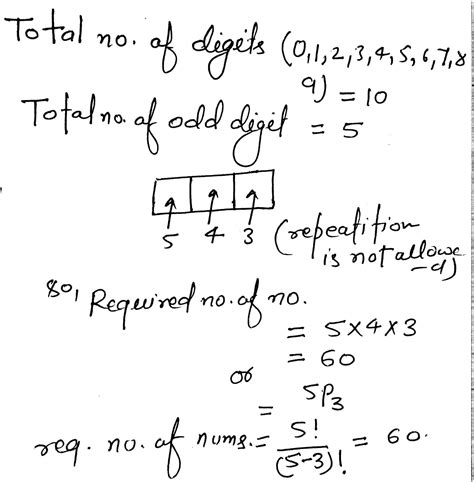 Total no. of digits (0,1,2,3,4,5,6,7,8
9) = 10
Total no. of odd digit = 5
5 4 3 (repeatition
is not allowe
-d)
So, Required no. of no.
= 5×4×3
= 60
or
= 5P3
req. no. of nums. = 5!/(5-3)! = 60.